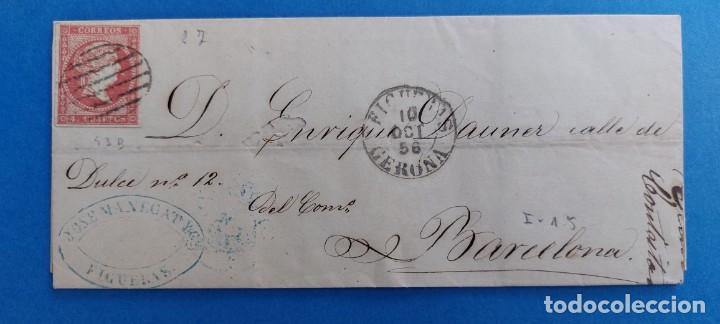 27
CORREOS
4 CUARTOS
D. Enrique Dauner calle de
FIGUERAS
10
OCT
56
GERONA
53B
Dulce nº 12.
del Comº
I-15
Barcelona.
JOSE MANEGAT
FIGUERAS.
todocoleccion